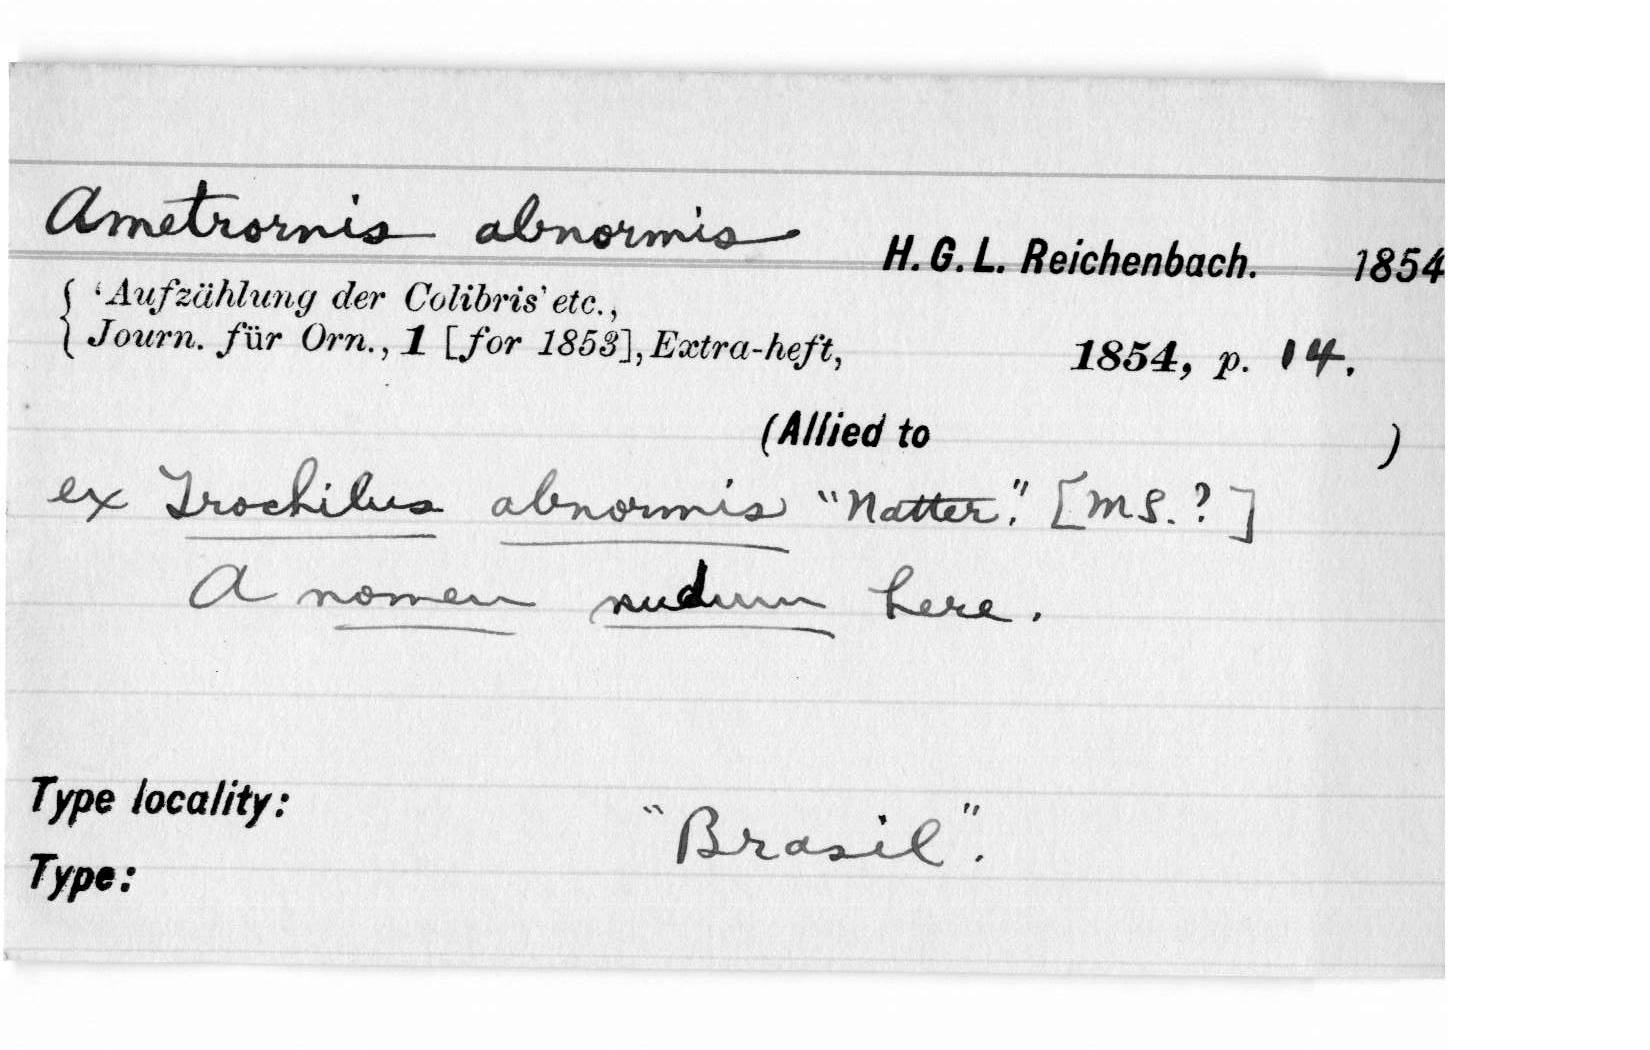 Ametrornis abnormis H. G. L. Reichenbach. 1854
{ 'Aufzählung der Colibris' etc.,
Journ. für Orn., 1 [for 1853], Extra-heft, 1854, p. 14.
(Allied to )
ex Trochilus abnormis "Natter." [MS.?]
A nomen nudum here.
Type locality:
"Brasil".
Type: